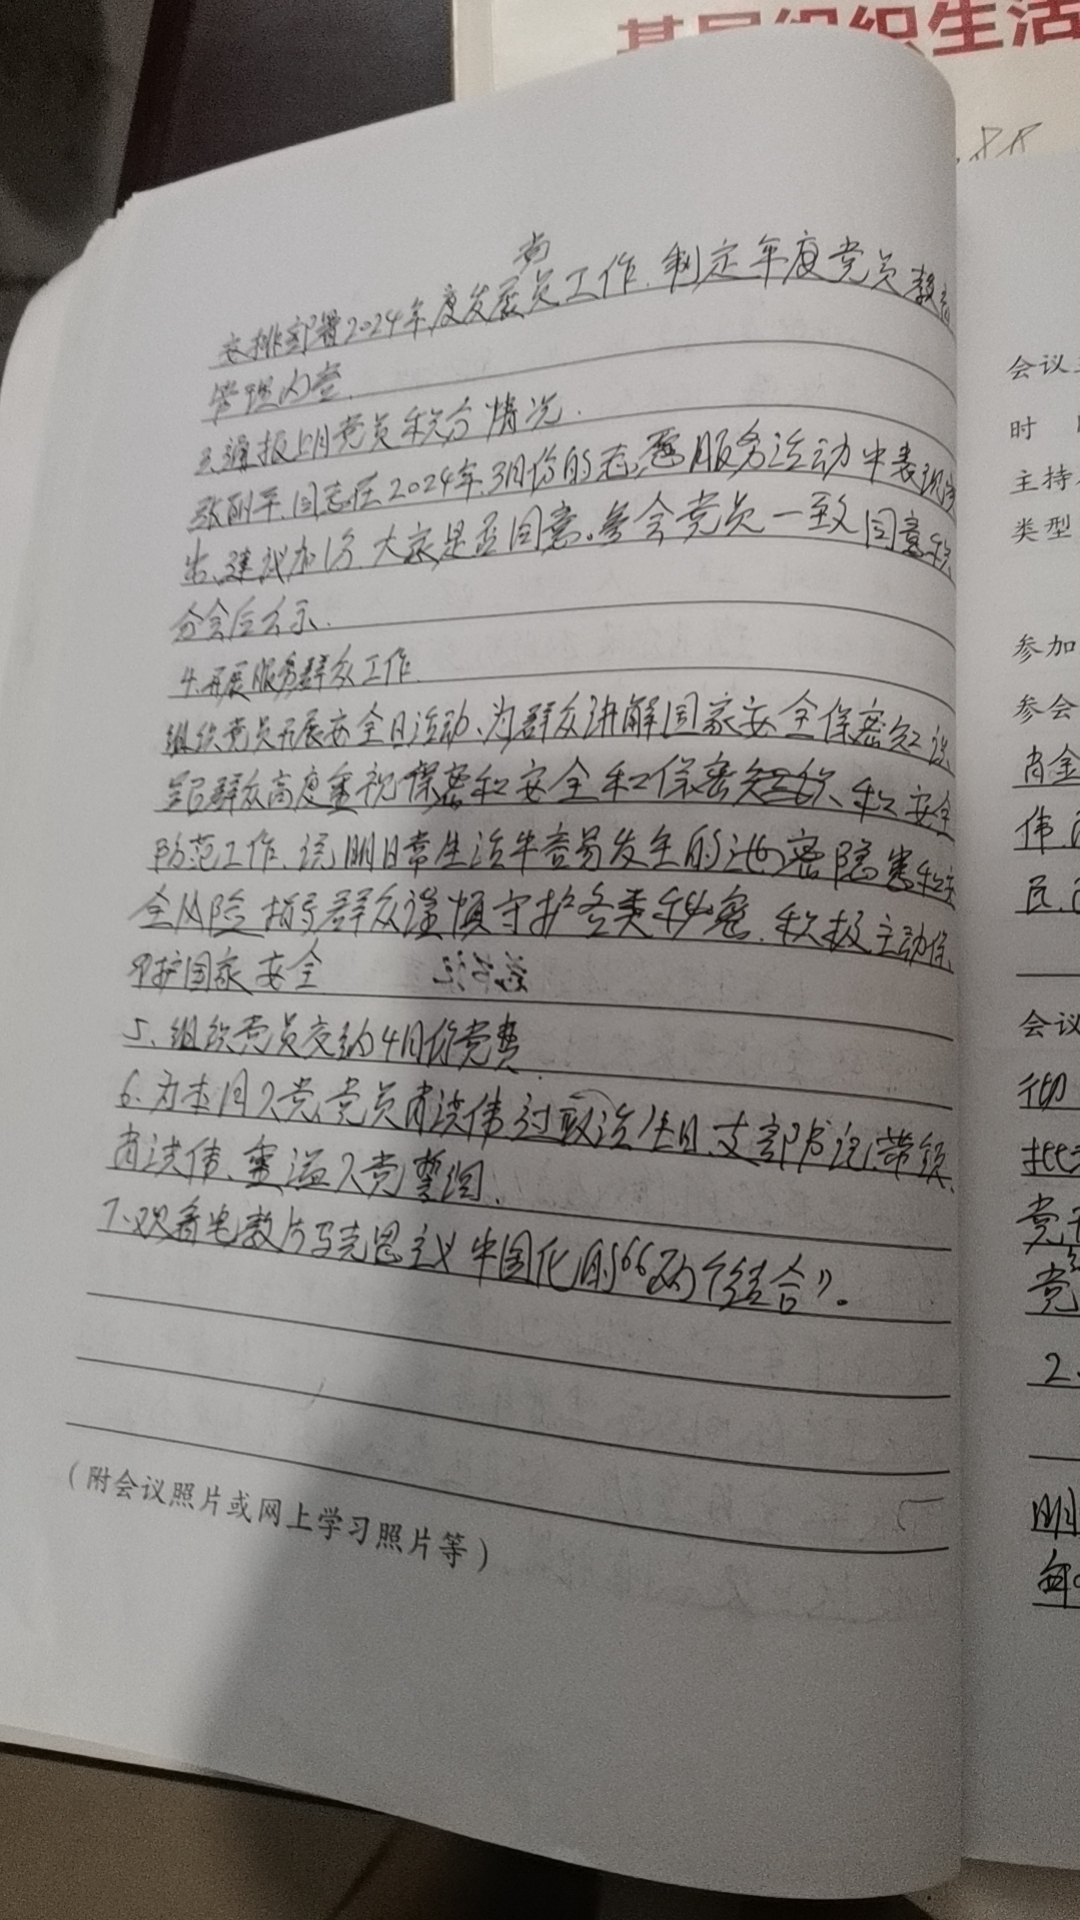 基层组织生活
党
安排部署2024年度发展员工作.制定年度党员教育
管理内容.
3.通报上月党员积分情况.
同志在2024年3月份的志愿服务活动中表现突
出、建议加1分.大家是否同意。参会党员一致同意积
分会后公示.
4.开展服务群众工作.
组织党员开展安全日活动、为群众讲解国家安全保密知识
群众高度重视保密和安全和保密知识、和安全
防范工作.说明日常生活中容易发生的泄密隐患和安
全风险指导群众谨慎守护各类秘密.积极主动保
护国家安全
5、组织党员交纳4月份党费
6.为本月入党党员肖洪伟过政治生日.支部书记带领
肖洪伟、重温入党誓词.
7.观看电教片马克思主义中国化的“两个结合”。
(附会议照片或网上学习照片等)
会议
时
主持
类型
参加
参会
肖金
伟
民
会议
彻
党
党
2.
明